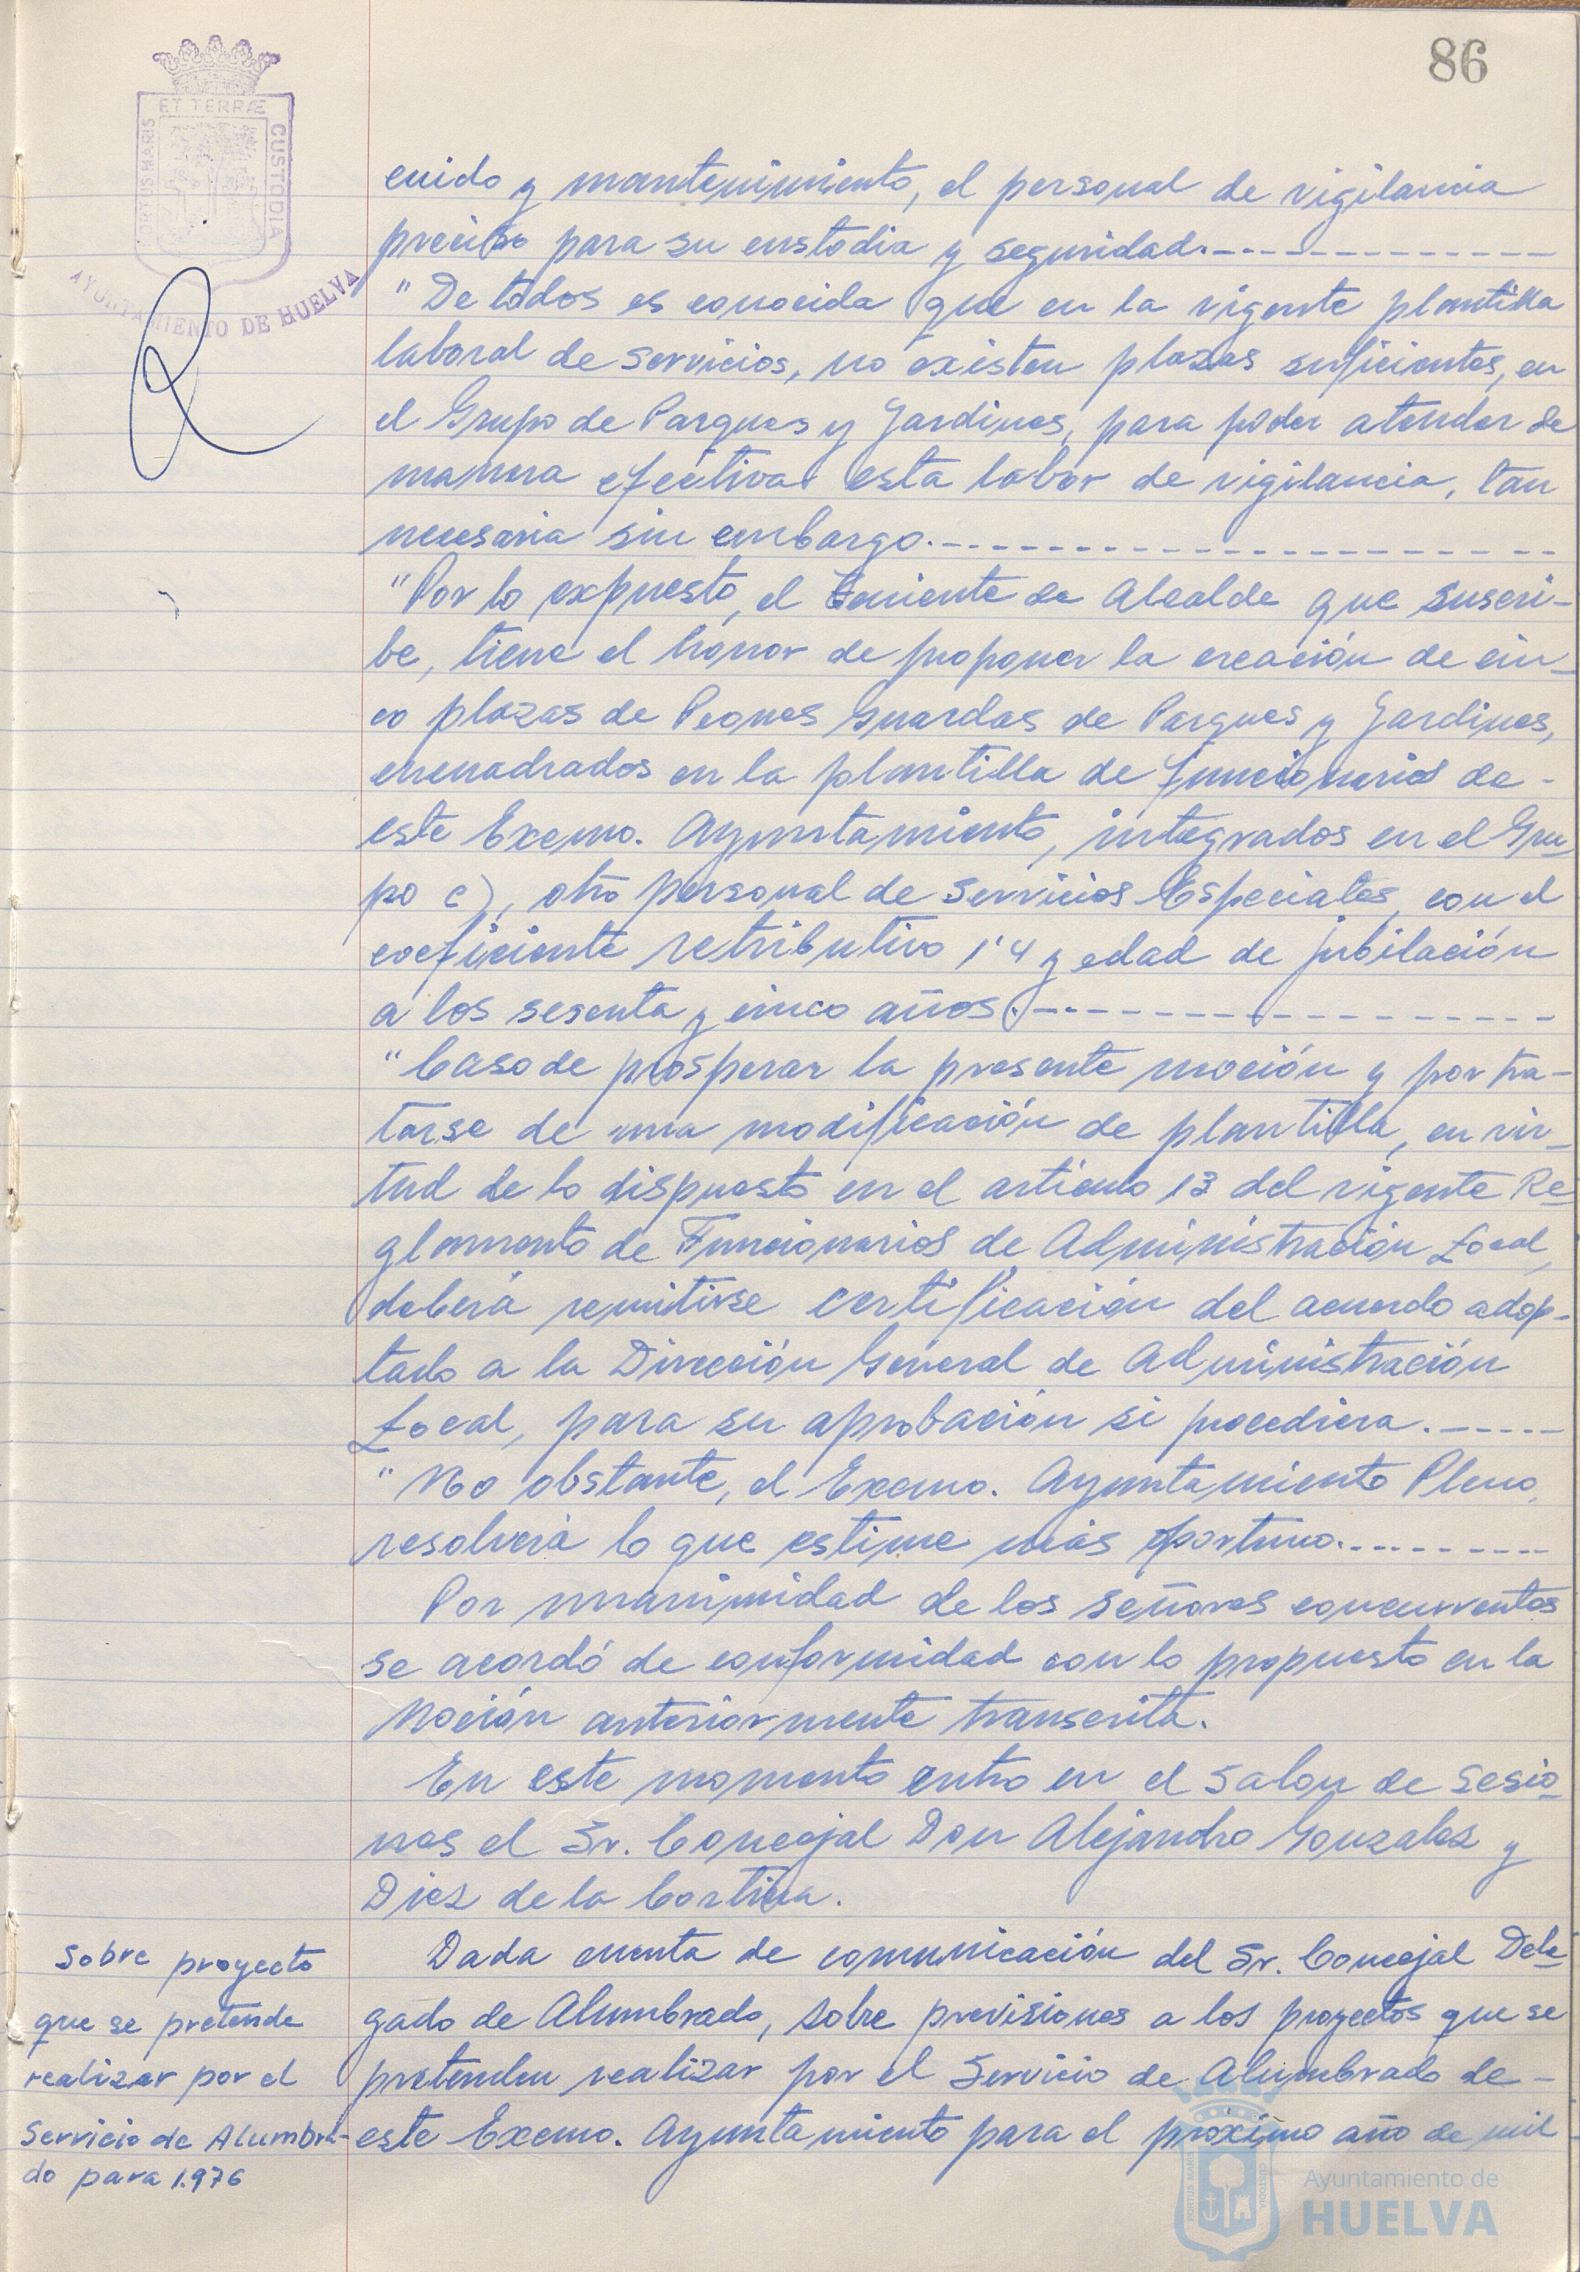 86
ET TERRÆ
PORTUS MARIS
CUSTODIA
AYUNTAMIENTO DE HUELVA
cuido y mantenimiento, el personal de vigilancia
preciso para su custodia y seguridad.
"De todos es conocida que en la vigente plantilla
laboral de servicios, no existen plazas suficientes, en
el Grupo de Parques y Jardines, para poder atender de
manera efectiva esta labor de vigilancia, tan
necesaria sin embargo.
"Por lo expuesto, el Teniente de Alcalde que suscri-
be, tiene el honor de proponer la creación de cin-
co plazas de Peones Guardas de Parques y Jardines,
encuadrados en la plantilla de funcionarios de-
este Excmo. Ayuntamiento, integrados en el Gru-
po c), otro personal de Servicios Especiales, con el
coeficiente retributivo 1'4 y edad de jubilación
a los sesenta y cinco años.
"Caso de prosperar la presente moción y por tra-
tarse de una modificación de plantilla, en vir-
tud de lo dispuesto en el artículo 13 del vigente Re-
glamento de Funcionarios de Administración Local,
deberá remitirse certificación del acuerdo adop-
tado a la Dirección General de Administración
Local, para su aprobación si procediera.
"No obstante, el Excmo. Ayuntamiento Pleno,
resolverá lo que estime más oportuno.
Por unanimidad de los señores concurrentes
se acordó de conformidad con lo propuesto en la
Moción anteriormente transcrita.
En este momento entro en el Salon de Sesio-
nes el Sr. Concejal Don Alejandro Gonzalez y
Diez de la Cortina.
Sobre proyecto
que se pretende
realizar por el
Servicio de Alumbra-
do para 1.976
Dada cuenta de comunicación del Sr. Concejal Dele-
gado de Alumbrado, sobre previsiones a los proyectos que se
pretenden realizar por el Servicio de Alumbrado de-
este Excmo. Ayuntamiento para el próximo año de mil
PORTUS MARIS
CUSTODIA
Ayuntamiento de
HUELVA